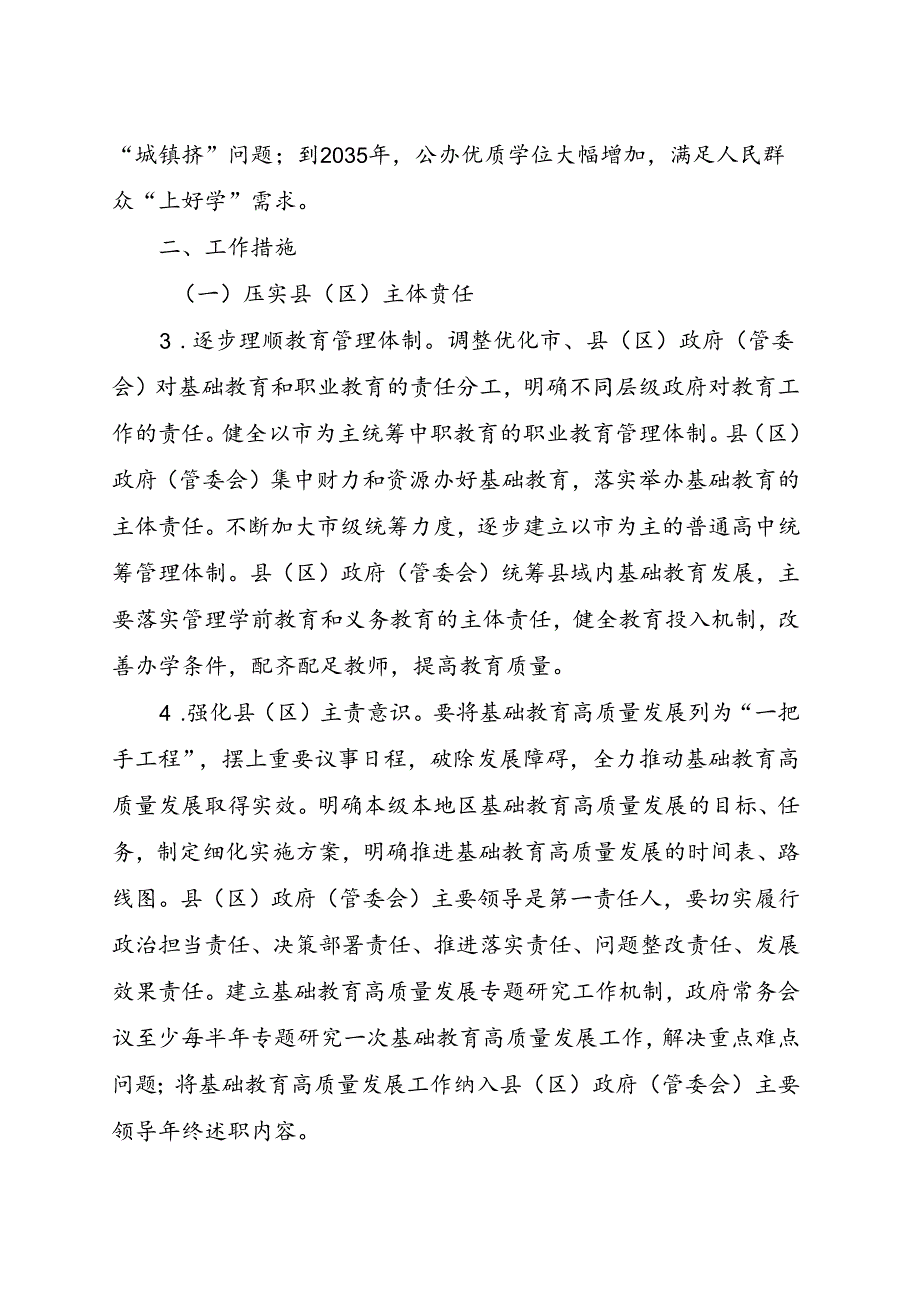 “城镇挤”问题；到2035年，公办优质学位大幅增加，满足人民群
众“上好学”需求。
二、工作措施
（一）压实县（区）主体贲任
3 .逐步理顺教育管理体制。调整优化市、县（区）政府（管委
会）对基础教育和职业教育的责任分工，明确不同层级政府对教育工
作的责任。健全以市为主统筹中职教育的职业教育管理体制。县（区）
政府（管委会）集中财力和资源办好基础教育，落实举办基础教育的
主体责任。不断加大市级统筹力度，逐步建立以市为主的普通高中统
筹管理体制。县（区）政府（管委会）统筹县域内基础教育发展，主
要落实管理学前教育和义务教育的主体责任，健全教育投入机制，改
善办学条件，配齐配足教师，提高教育质量。
4 .强化县（区）主责意识。要将基础教育高质量发展列为“一把
手工程”，摆上重要议事日程，破除发展障碍，全力推动基础教育高
质量发展取得实效。明确本级本地区基础教育高质量发展的目标、任
务，制定细化实施方案，明确推进基础教育高质量发展的时间表、路
线图。县（区）政府（管委会）主要领导是第一责任人，要切实履行
政治担当责任、决策部署责任、推进落实责任、问题整改责任、发展
效果责任。建立基础教育高质量发展专题研究工作机制，政府常务会
议至少每半年专题研究一次基础教育高质量发展工作，解决重点难点
问题；将基础教育高质量发展工作纳入县（区）政府（管委会）主要
领导年终述职内容。